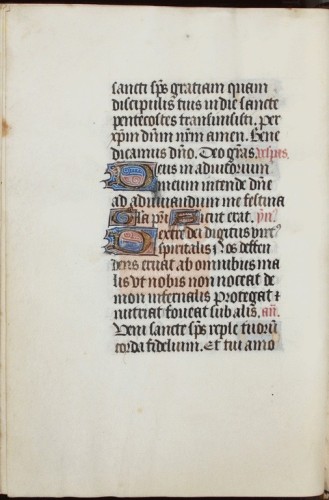 sancti sps gratiam quam
discipulis tuis in die sancte
pentecostes transmisisti. per
xpm dnm nrm amen. Bene
dicamus dno. Deo gras. 
Deus in adiutorium
meum intende dne
ad adiuvandum me festina
Gla pri Sicut erat. yn.
Dextre dei digitus virt9
spiritalis Nos deffen
dens eruat ab omnibus ma
lis vt nobis non noceat de
mon infernalis Protegat &
nutriat foveat sub alis. an.
Veni sancte sps reple tuorum
corda fidelium. Et tui amo